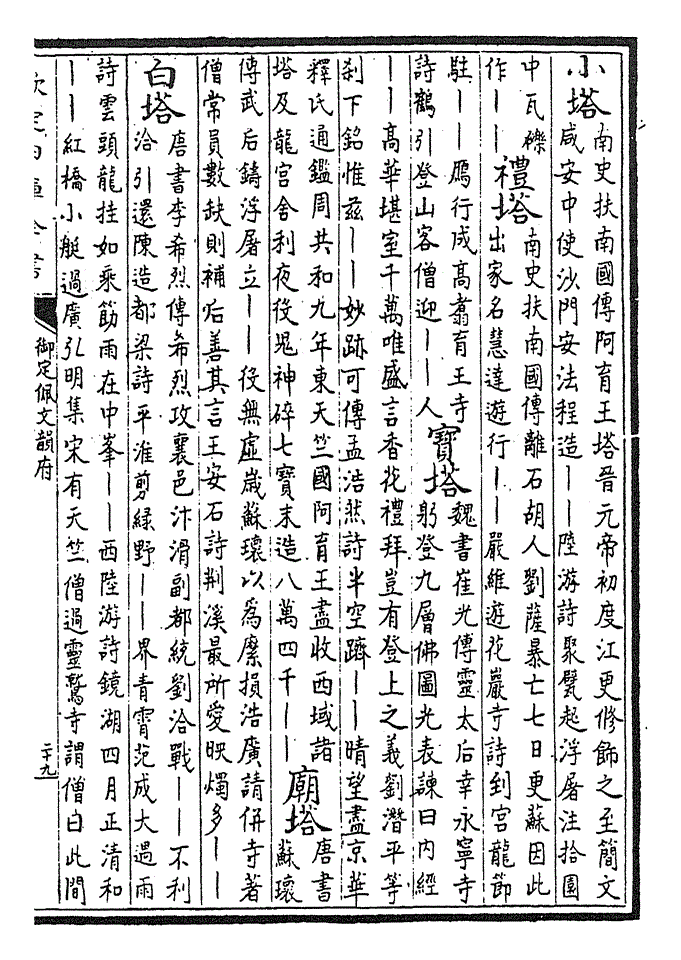 小塔 南史扶南國傳阿育王塔晉元帝初度江更修飾之至簡文
咸安中使沙門安法程造丨丨陸游詩聚甓起浮屠注拾園
中瓦礫
作丨丨 禮塔 南史扶南國傳離石胡人劉薩暴亡七日更蘇因此
出家名慧達遊行丨丨嚴維遊花巖寺詩到宮龍節
駐丨丨鴈行成高翥育王寺
詩鶴引登山客僧迎丨丨人 寶塔 魏書崔光傳靈太后幸永寧寺
躬登九層佛圖光表諫曰内經
丨丨高華堪室千萬唯盛言香花禮拜豈有登上之義劉潛平等
剎下銘惟兹丨丨妙跡可傳孟浩然詩半空躋丨丨晴望盡京華
釋氏通鑑周共和九年東天竺國阿育王盡收西域諸
塔及龍宫舍利夜役鬼神碎七寶末造八萬四千丨丨 廟塔 唐書
蘇瓌
傳武后鑄浮屠立丨丨役無虚嵗蘇瓌以為縻損浩廣請併寺著
僧常員數缺則補后善其言王安石詩荆溪最所愛映燭多丨丨
白塔 唐書李希烈傳希烈攻襄邑汴滑副都統劉洽戰丨丨不利
洽引還陳造都梁詩平淮剪緑野丨丨界青霄范成大過雨
詩雲頭龍挂如乘筯雨在中峯丨丨西陸游詩鏡湖四月正清和
丨丨紅橋小艇過廣弘明集宋有天竺僧過靈鷲寺謂僧曰此間
御定佩文韻府
二十九